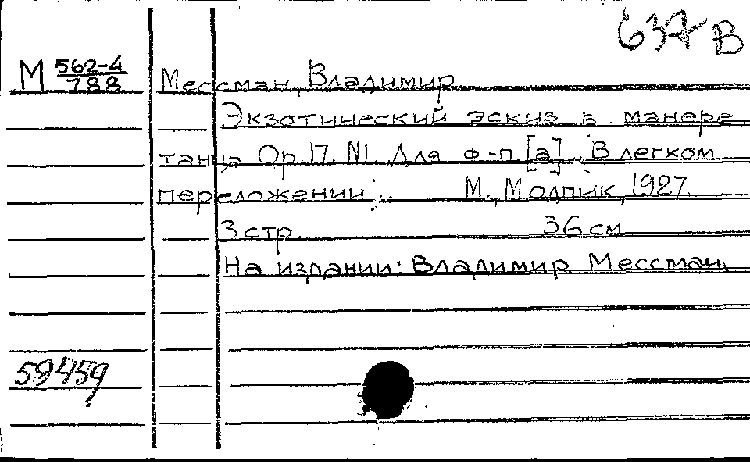 637 В
М 562-4/788
Мессман, Владимир
Экзотический эскиз в манере
танца Op. 17. N1. Для ф-п [а]. В легком
переложении. М., Модпик, 1927.
3 стр. 36 см.
На издании: Владимир Мессман.
59459